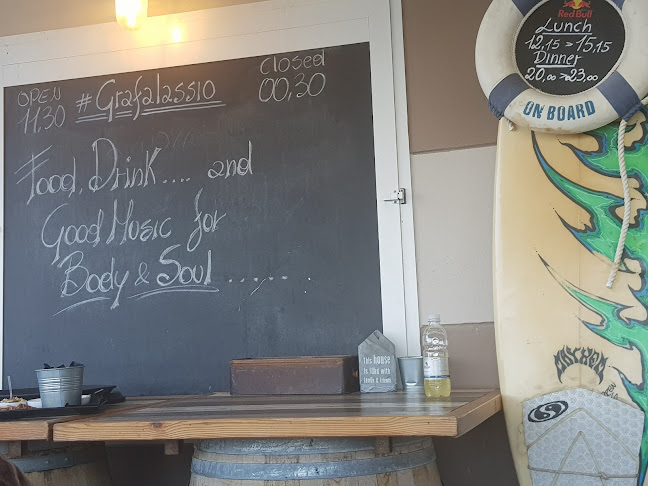 OPEN
11,30
#Grafalassio
Closed
00,30
Food, Drink.... and
Good Music for
Body & Soul ......
Red Bull
Lunch
12,15 > 15,15
Dinner
20,00 > 23,00
ON BOARD
This house
is filled with
family & friends